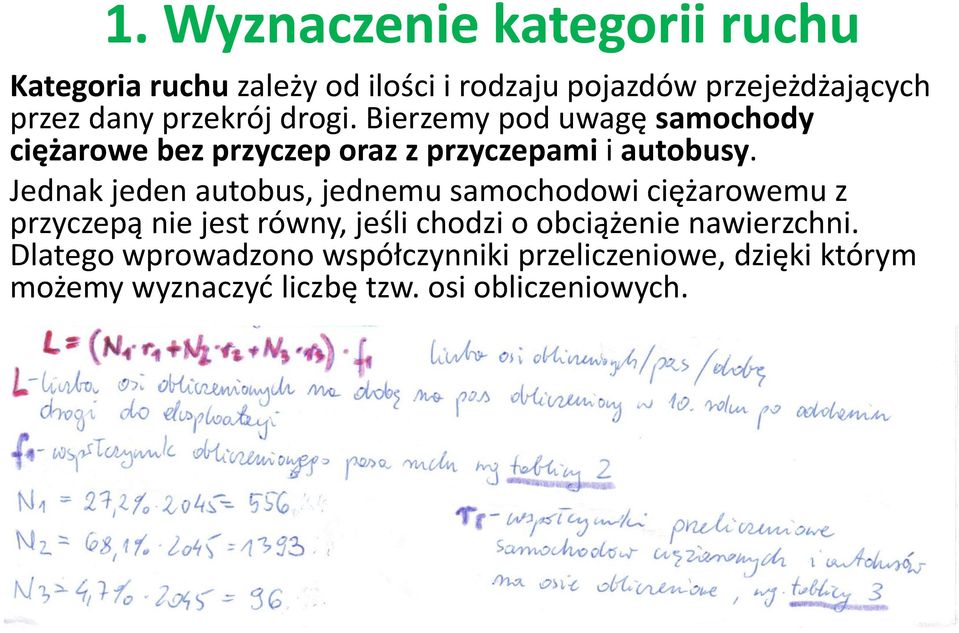 1. Wyznaczenie kategorii ruchu
Kategoria ruchu zależy od ilości i rodzaju pojazdów przejeżdżających
przez dany przekrój drogi. Bierzemy pod uwagę samochody
ciężarowe bez przyczep oraz z przyczepami i autobusy.
Jednak jeden autobus, jednemu samochodowi ciężarowemu z
przyczepą nie jest równy, jeśli chodzi o obciążenie nawierzchni.
Dlatego wprowadzono współczynniki przeliczeniowe, dzięki którym
możemy wyznaczyć liczbę tzw. osi obliczeniowych.
L=(N1·r1+N2·r2+N3·r3)·f1
liczba osi obliczeniowych/pas/dobę
L-liczba osi obliczeniowych na dobę na pas obliczeniowy w 10. roku po oddaniu
drogi do eksploatacji
f1-współczynnik obliczeniowego pasa ruchu wg tablicy 2
N1 = 27,2%·2045= 556
N2= 68,1%·2045=1393
N3=4,7%·2045 = 96
ri-współczynniki przeliczeniowe
samochodów ciężarowych i autobusów
na osie obliczeniowe, wg. tablicy 3